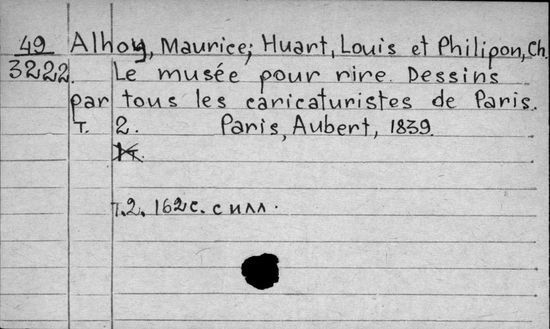 49 Alhoy, Maurice; Huart, Louis et Philipon, Ch.
3222. Le musée pour rire. Dessins
par tous les caricaturistes de Paris.
T. 2. Paris, Aubert, 1839.
т.2. 162с. с илл.